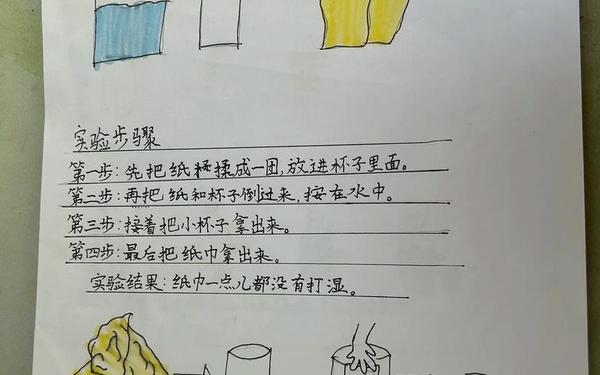 实验步骤
第一步：先把纸揉揉成一团，放进杯子里面。
第二步：再把纸和杯子倒过来，按在水中。
第三步：接着把小杯子拿出来。
第四步：最后把纸巾拿出来。
实验结果：纸巾一点儿都没有打湿。